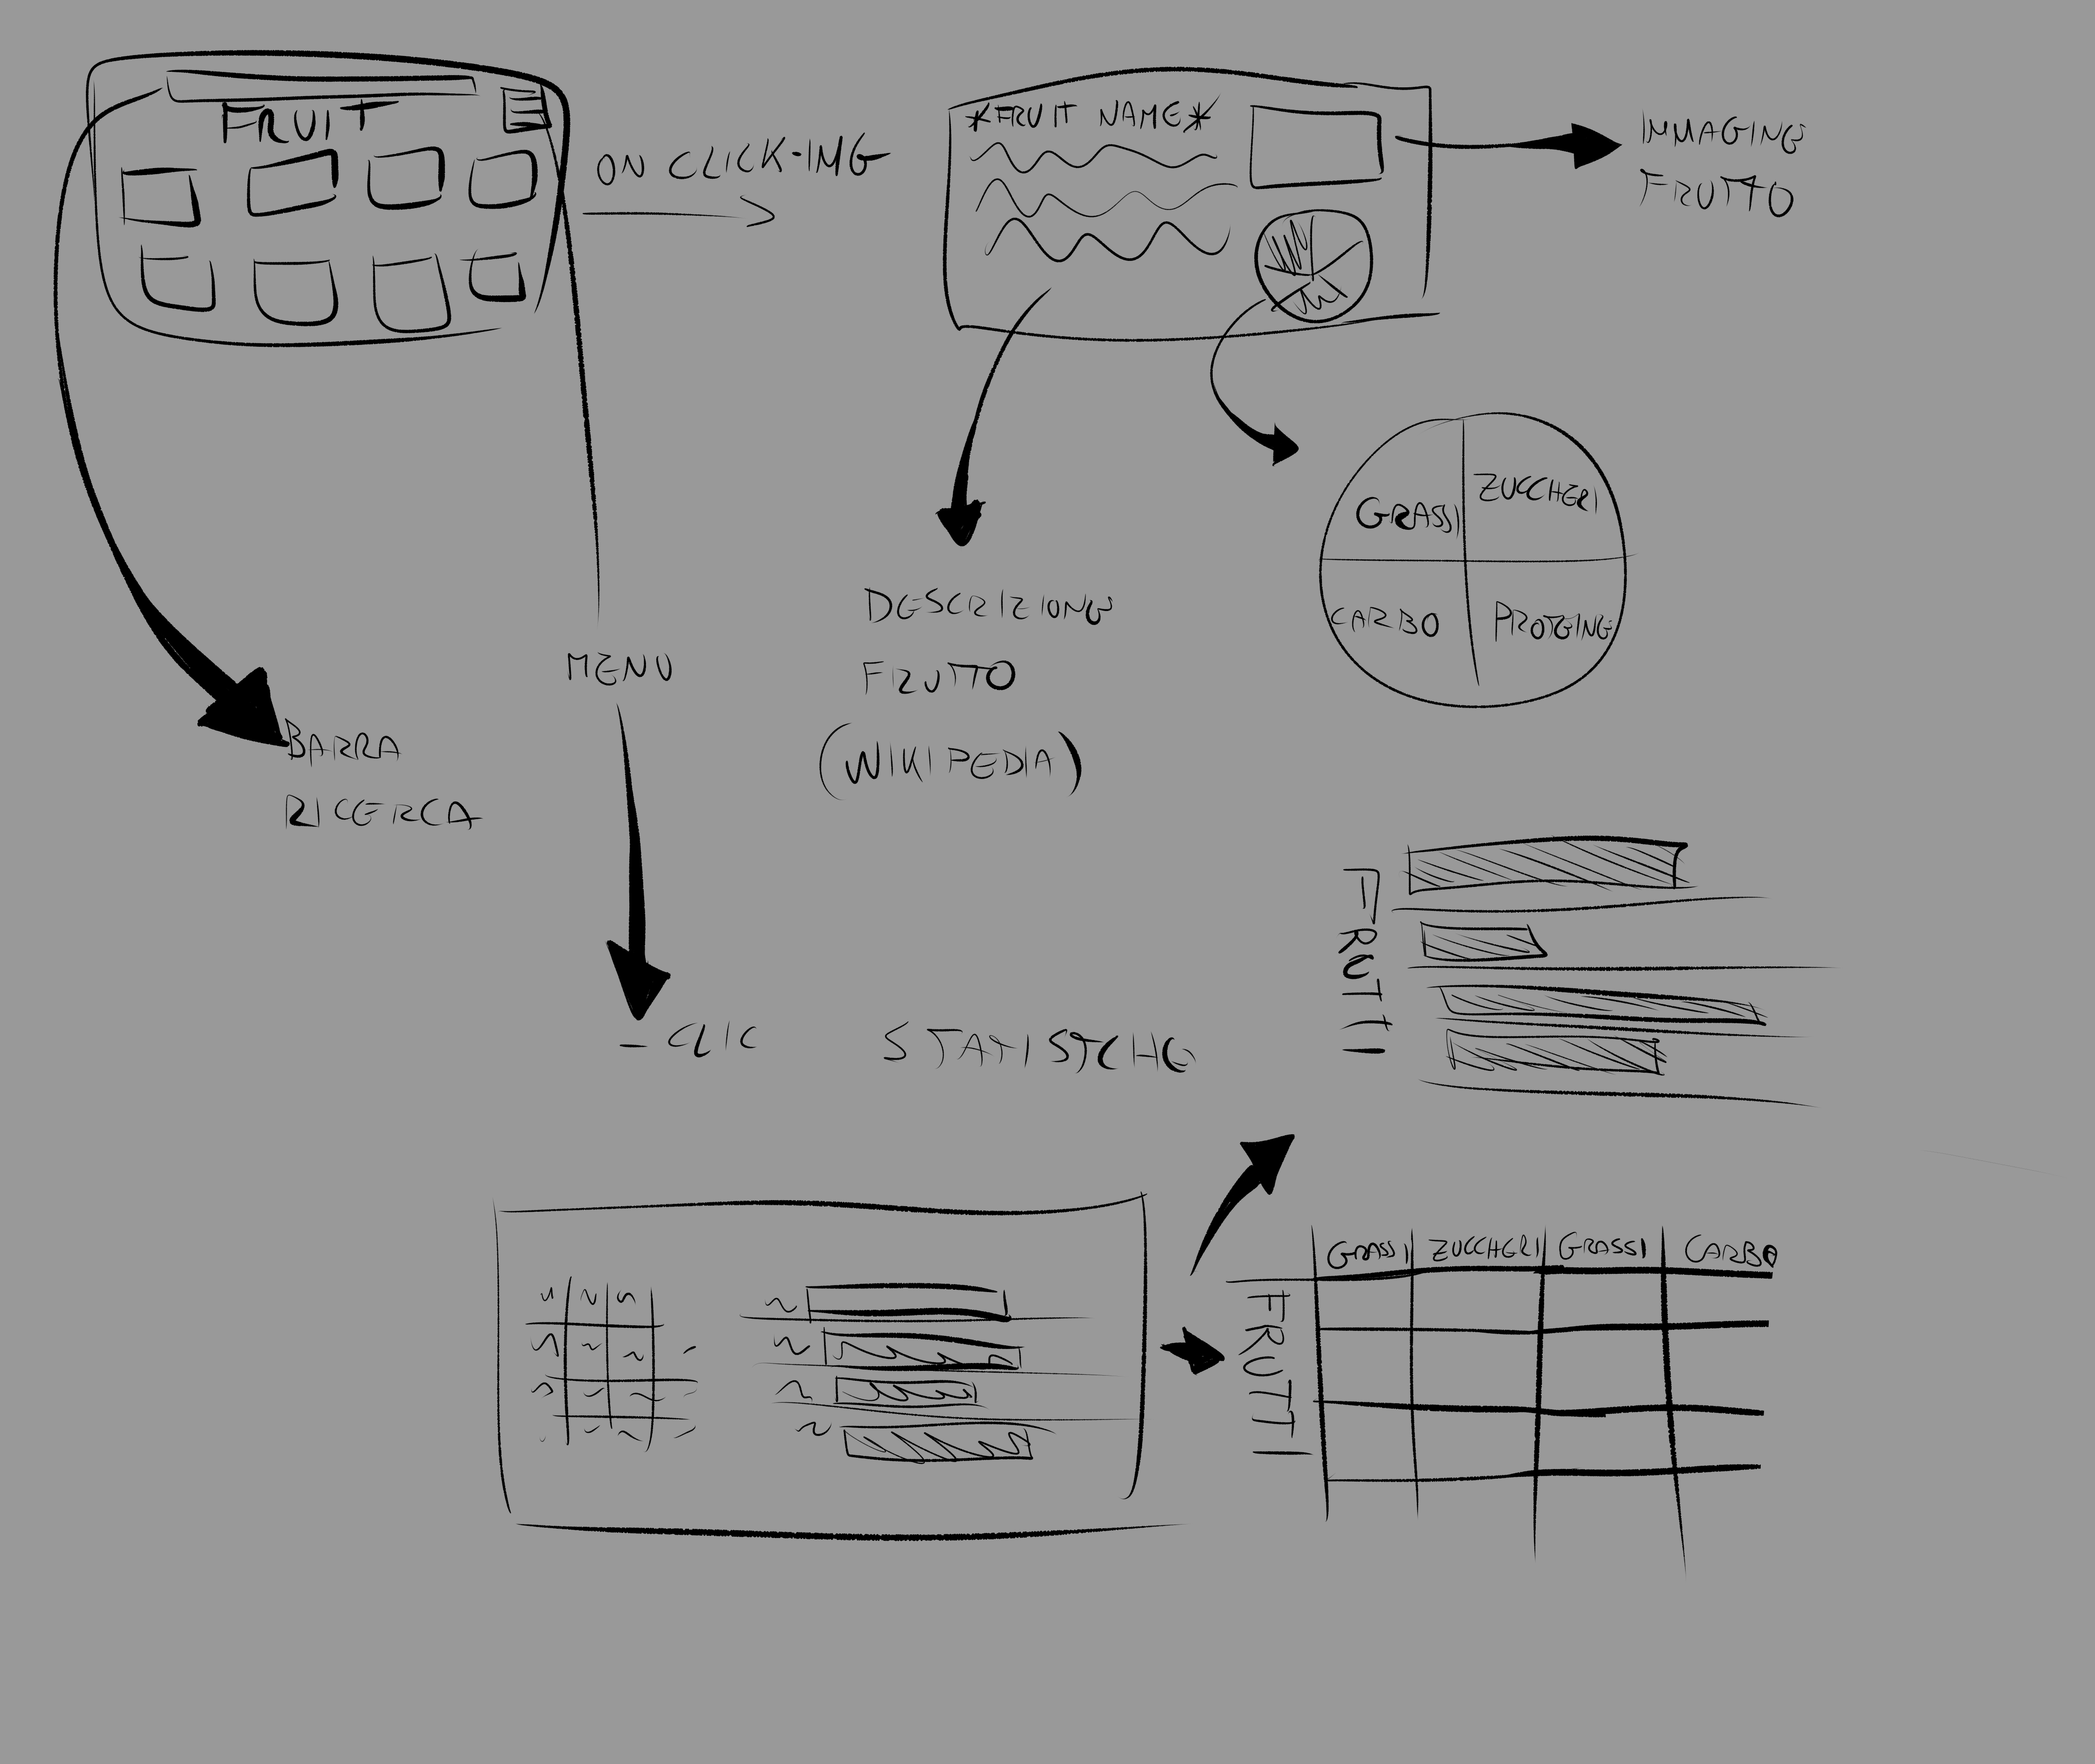 FRUIT
ON CLICK-IMG
*FRUIT NAME*
IMMAGINE
FRUTTO
GRASSI
ZUCCHERI
CARBO
PROTEINE
DESCRIZIONE
FRUTTO
(WIKIPEDIA)
MENU
BARRA
RICERCA
- CLIC
STATISTCHE
FRUTTI
GRASSI
ZUCCHERI
GRASSI
CARBO
FRUTTI